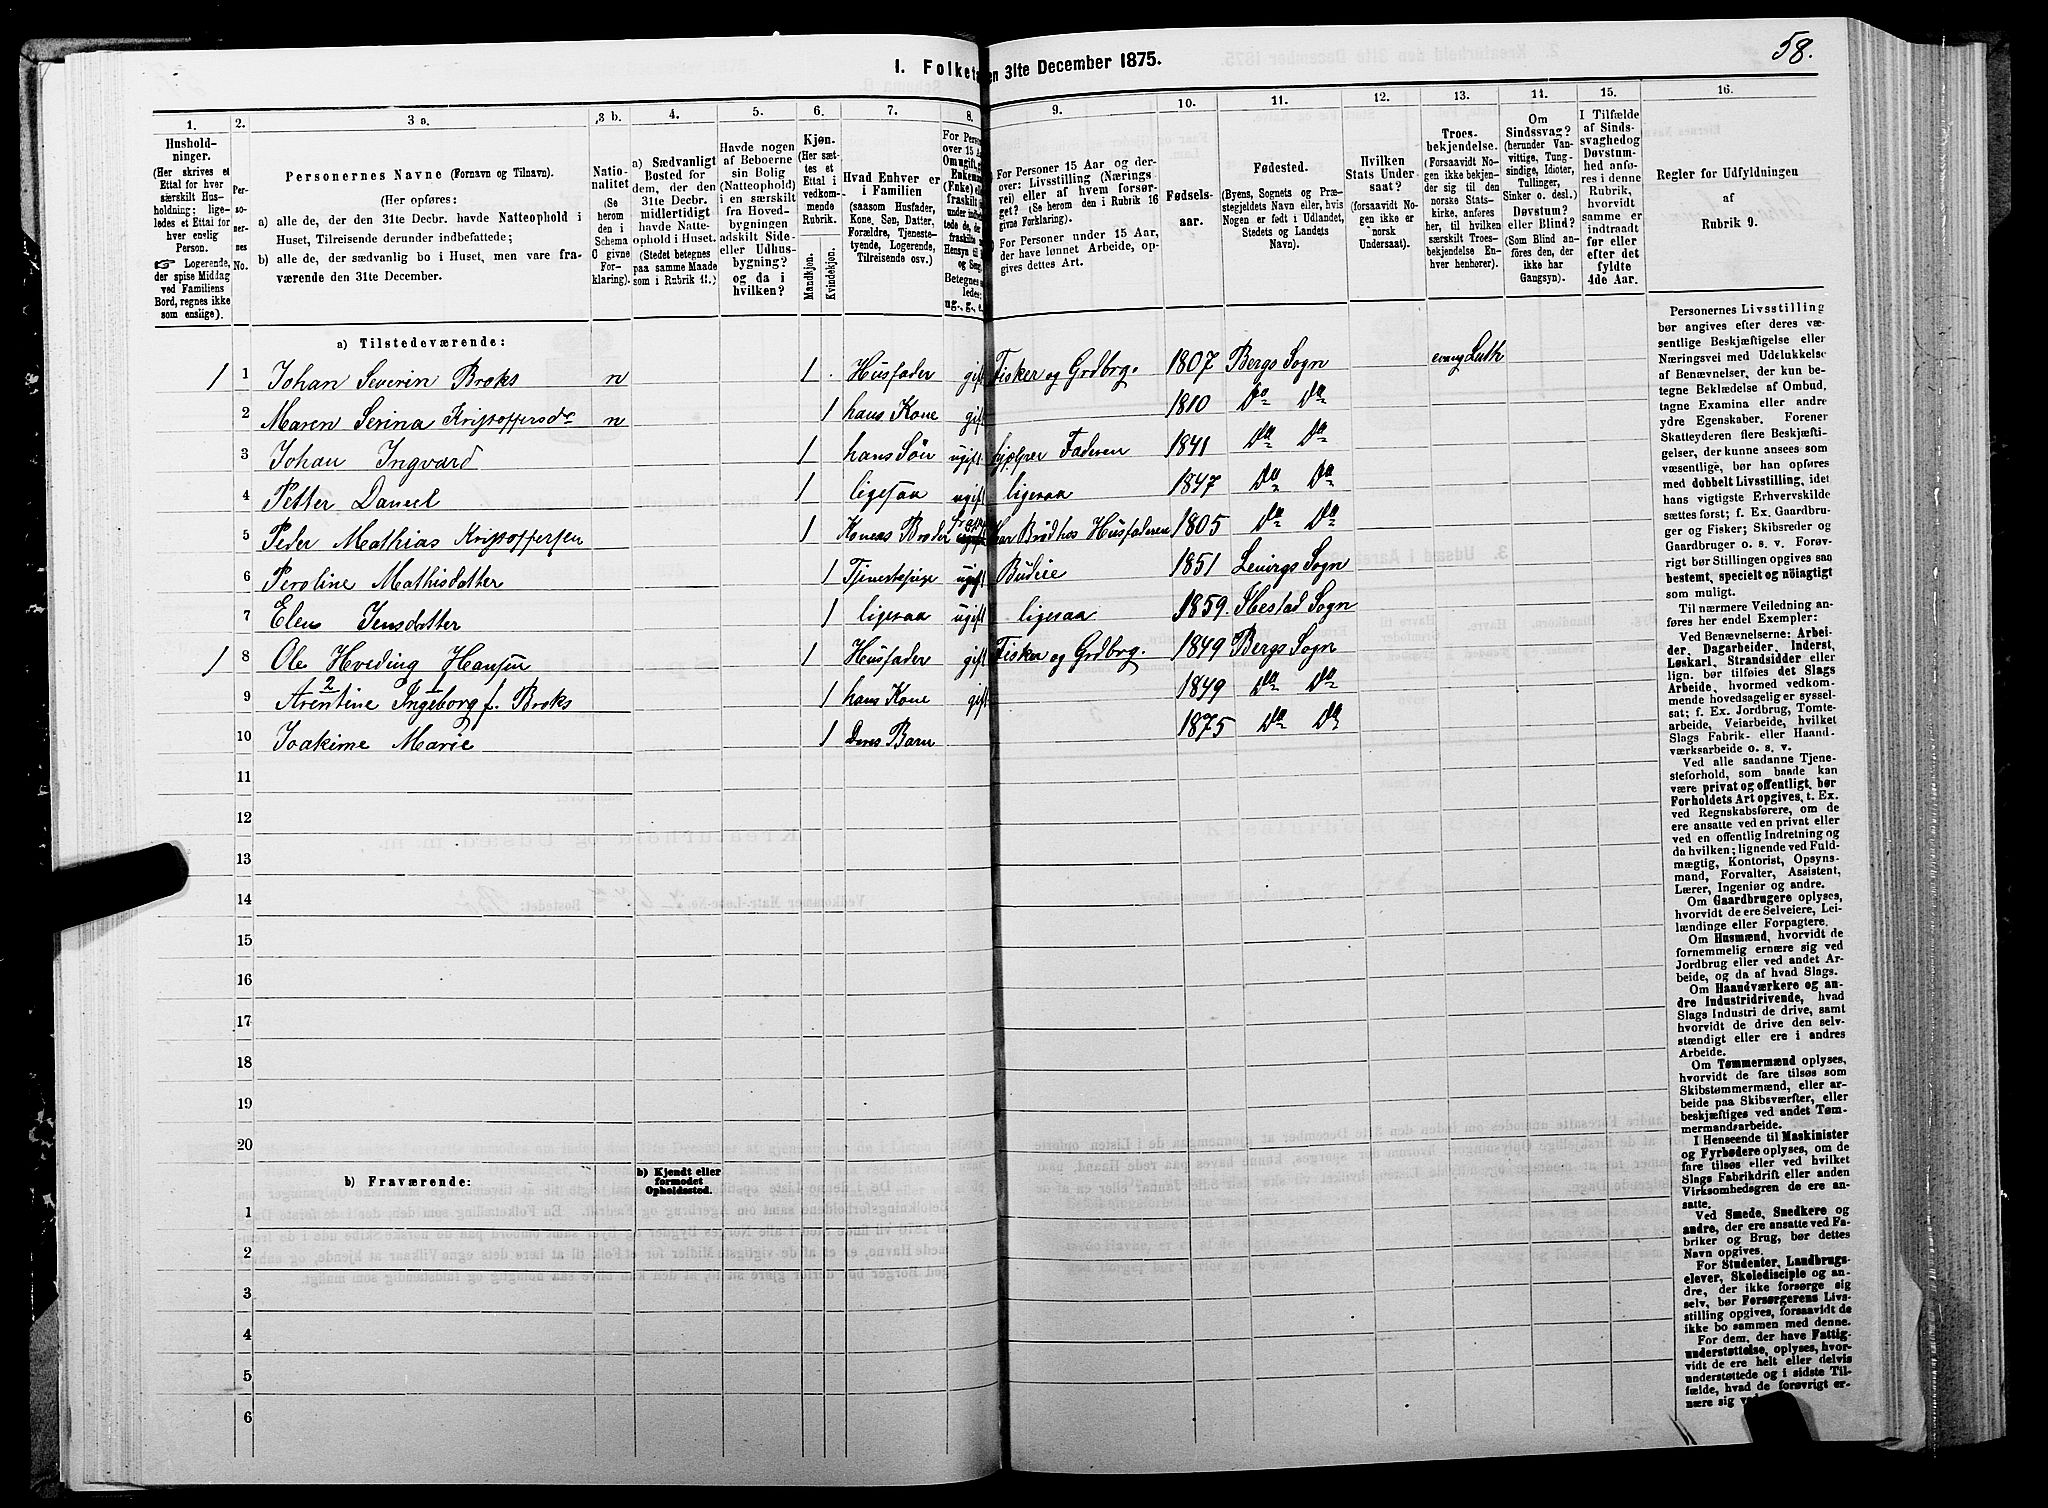 58.
I. Folketa
en 31te December 1875.
1.
2.
3 a.
3 b.
4.
5.
6.
7.
8.
9.
10.
11.
12.
13.
14.
15.
16.
Hushold-
ninger.
(Her skrives et
Ettal for hver
særskilt Hus-
holdning; lige-
ledes et Ettal for
hver enslig
Person.
☞ Logerende,
der spise Middag
ved Familiens
Bord, regnes ikke
som enslige).
Per-
so-
ner-
nes
No.
Personernes Navne (Fornavn og Tilnavn).
(Her opføres:
a) alle de, der den 31te Decbr. havde Natteophold i
Huset, Tilreisende derunder indbefattede;
b) alle de, der sædvanlig bo i Huset, men vare fra-
værende den 31te December.)
Natio-
nalitet
(Se
herom
den i
Schema
O givne
For-
klaring).
a) Sædvanligt
Bosted for
dem, der den
31te Decbr.
midlertidigt
havde Natte-
ophold i Huset.
(Stedet betegnes
paa samme Maade
som i Rubrik 11.)
Havde nogen
af Beboerne
sin Bolig
(Natteophold)
i en særskilt
fra Hoved-
bygningen
adskilt Side-
eller Udhus-
bygning?
og da i
hvilken?
Kjøn.
(Her sæt-
tes et
Ettal i
vedkom-
mende
Rubrik.
Mandkjøn.
Kvindekjøn.
Hvad Enhver er
i Familien
(saasom Husfader,
Kone, Søn, Datter,
Forældre, Tjeneste-
tyende, Logerende,
Tilreisende osv.)
For Person
over 15 A
Om ugift, g
Enkem
(Enke) ell
fraskilt
under indbe
tede de, de
fraskilte
Hensyn ti
og Seng.
Betegnes
ledes:
ug., g., e.
For Personer 15 Aar og der-
over: Livsstilling (Nærings-
vei) eller af hvem forsør-
get? (Se herom den i Rubrik 16
givne Forklaring.)
For Personer under 15 Aar,
der have lønnet Arbeide, op-
gives dettes Art.
Fødsels-
aar.
Fødested.
(Byens, Sognets og Præ-
stegjeldets Navn eller, hvis
Nogen er født i Udlandet,
Stedets og Landets
Navn).
Hvilken
Stats Under-
saat?
(forsaavidt No-
gen ikke er
norsk
Undersaat).
Troes-
bekjendelse.
(Forsaavidt No-
gen ikke bekjen-
der sig til den
norske Stats-
kirke, anføres
her, til hvilken
særskilt Troes-
bekjendelse En-
hver henhører).
Om
Sindssvag?
(herunder Van-
vittige, Tung-
sindige, Idioter,
Tullinger,
Sinker o. desl.)
Døvstum?
eller Blind?
(Som Blind an-
føres den, der
ikke har
Gangsyn).
I Tilfælde
af Sinds-
svaghed og
Døvstum-
hed anfø-
res i denne
Rubrik,
hvorvidt
samme er
indtraadt
før eller
efter det
fyldte
4de Aar.
Regler for Udfyldningen
af
Rubrik 9.
a) Tilstedeværende:
1 1 Johan Severin Broks n 1 Husfader gift Fisker og Grdbrg. 1807 Bergs Sogn evang Luth
2 Maren Serina Kristoffersdr n 1 hans Kone gift 1810 Do Do
3 Johan Ingvard 1 hans Søn ugift hjelper Faderen 1841 Do Do
4 Petter Daniel 1 ligesaa ugift ligesaa 1847 Do Do
5 Peder Mathias Kristoffersen 1 Konens Broder har Brød hos Husfaderen 1805 Do Do
6 Peroline Mathisdatter 1 Tjenestepige ugift Budeie 1851 Lenvigs Sogn
7 Elen Jensdatter 1 ligesaa ugift ligesaa 1859. Ibestad Sogn
1 8 Ole Hveding Hansen 1 Husfader gift Fisker og Grdbrg. 1849 Bergs Sogn
2 1
9 Arentine Ingeborg f. Broks 1 hans Kone gift 1849 Do Do
10 Joakime Marie 1 Deres Barn 1875 Do Do
11
12
13
14
15
16
17
18
19
20
b) Fraværende:
b) Kjendt eller
formodet
Opholdssted.
1
2
3
4
5
6
Personernes Livsstilling
bør angives efter deres væ-
sentlige Beskjæftigelse eller
Næringsvei med Udelukkelse
af Benævnelser, der kun be-
tegne Beklædelse af Ombud,
tagne Examina eller andre
ydre Egenskaber. Forener
Skatteyderen flere Beskjæfti-
gelser, der kunne ansees som
væsentlige, bør han opføres
med dobbelt Livsstilling, idet
hans vigtigste Erhvervskilde
sættes først; f. Ex. Gaardbru-
ger og Fisker; Skibsreder og
Gaardbruger o. s. v. Forøv-
rigt bør Stillingen opgives saa
bestemt, specielt og nöiagtigt
som muligt.
Til nærmere Veiledning an-
føres her endel Exempler:
Ved Benævnelserne: Arbei-
der, Dagarbeider, Inderst,
Løskarl, Strandsidder eller
lign. bør tilføies det Slags
Arbeide, hvormed vedkom-
mende hovedsagelig er syssel-
sat; f. Ex. Jordbrug, Tomte-
arbeide, Veiarbeide, hvilket
Slags Fabrik- eller Haand-
værksarbeide o. s. v.
Ved alle saadanne Tjene-
steforhold, som baade kan
være privat og offentligt, bør
Forholdets Art opgives, t. Ex.
ved Regnskabsførere, om de
ere ansatte ved en privat eller
ved en offentlig Indretning og
da hvilken; lignende ved Fuld-
mægtig, Kontorist, Opsyns-
mand, Forvalter, Assistent,
Lærer, Ingeniør og andre.
Om Gaardbrugere oplyses,
hvorvidt de ere Selveiere, Lei-
lændinge eller Forpagtere.
Om Husmænd, hvorvidt de
fornemmelig ernære sig ved
Jordbrug eller ved andet Ar-
beide, og da af hvad Slags.
Om Haandværkere og an-
dre Industridrivende, hvad
Slags Industri de drive, samt
hvorvidt de drive den selv-
stændigt eller ere i andres
Arbeide.
Om Tømmermænd oplyses,
hvorvidt de fare tilsøs som
Skibstømmermænd, eller ar-
beide paa Skibsværfter, eller
beskjæftiges ved andet Tøm-
mermandsarbeide.
I Henseende til Maskinister
og Fyrbødere oplyses, om de
fare tilsøs eller ved hvilket
Slags Fabrikdrift eller anden
Virksomhedsgren de ere an-
satte.
Ved Smede, Snedkere og
andre, der ere ansatte ved Fa-
briker og Brug, bør dettes
Navn opgives.
For Studenter, Landbrugs-
elever, Skoledisciple og an-
dre, der ikke forsørge sig
selv, bør Forsørgerens Livs-
stilling opgives, forsaavidt de
ikke bo sammen med denne.
For dem, der have Fattig-
understøttelse, oplyses, hvor-
vidt de ere helt eller delvis
understøttede og i sidste Til-
fælde, hvad de forøvrigt er-
nære sig